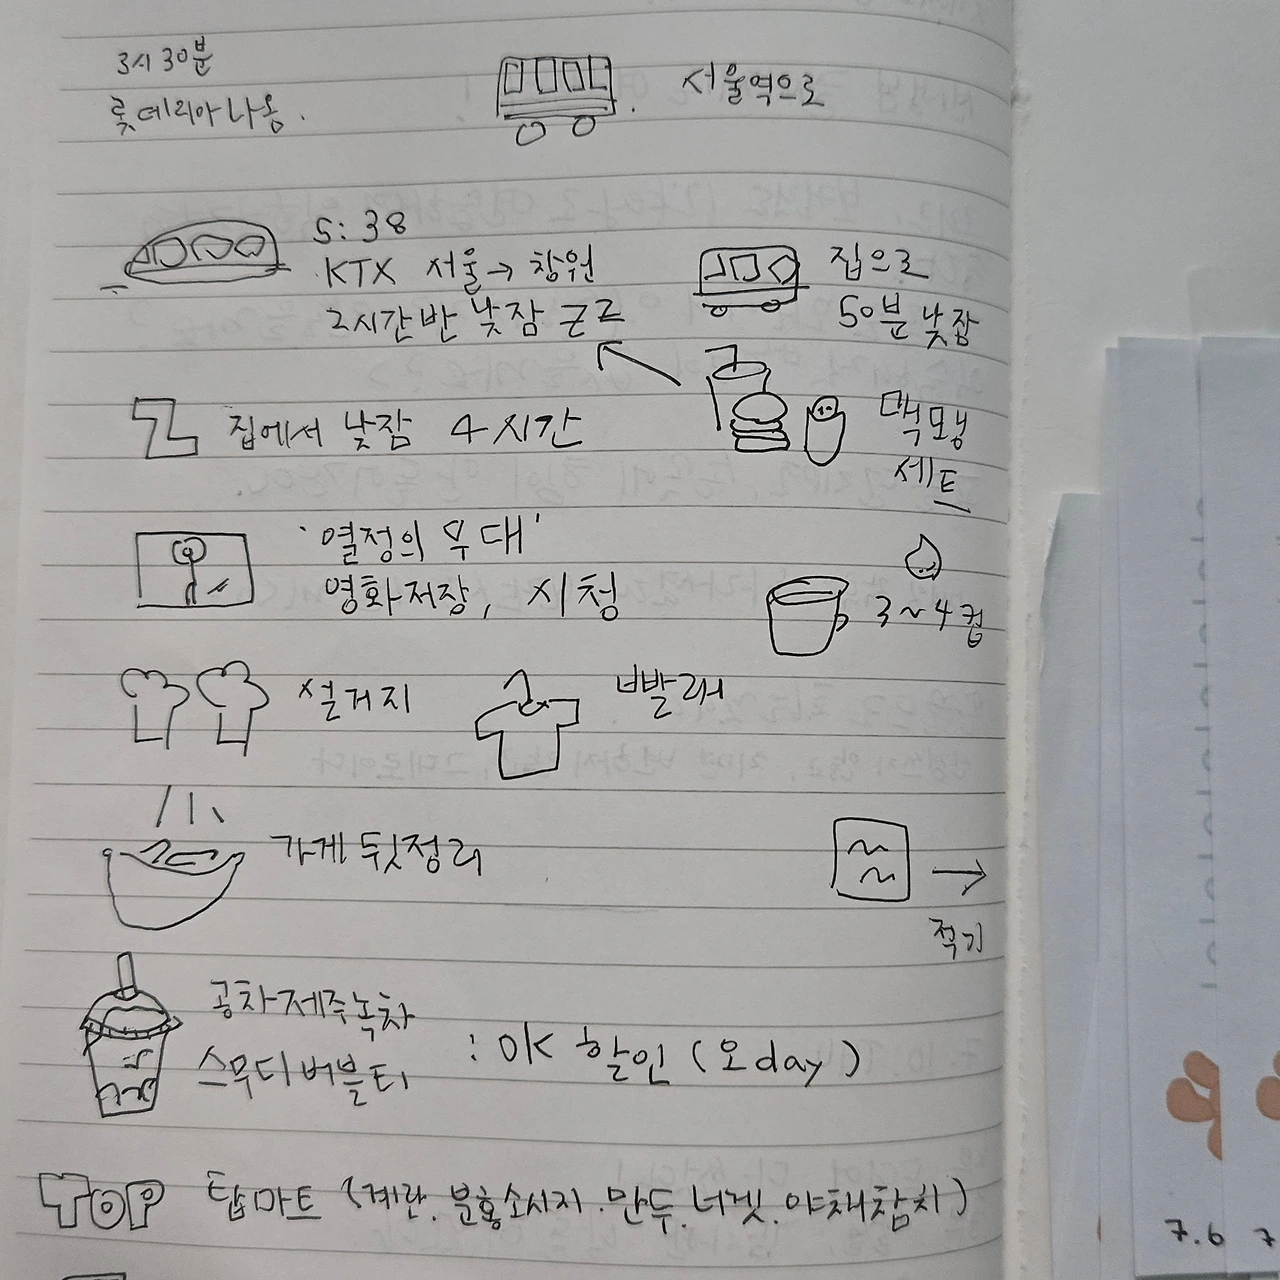 3시 30분
롯데리아 나옴.
서울역으로
5:38
KTX 서울→창원
2시간반 낮잠 ㄷㄹ
집으로
50분 낮잠
Z 집에서 낮잠 4시간
맥모닝
세트
'열정의 무대'
영화저장, 시청
3~4컵
설거지
빨래
가게 뒷정리
적기
공차 제주녹차
스무디 버블티
: OK 할인 (오day)
TOP 탑마트 (계란.분홍소시지.만두.너겟.야채참치)
7.6
7